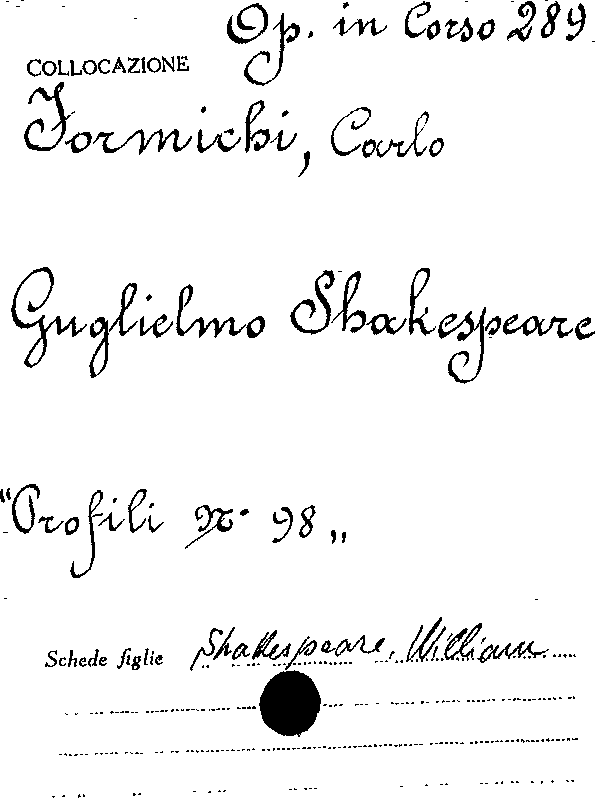 Op. in Corso 289
COLLOCAZIONE
Formichi, Carlo
Guglielmo Shakespeare
"Profili N. 98„
Schede figlie Shakespeare, William